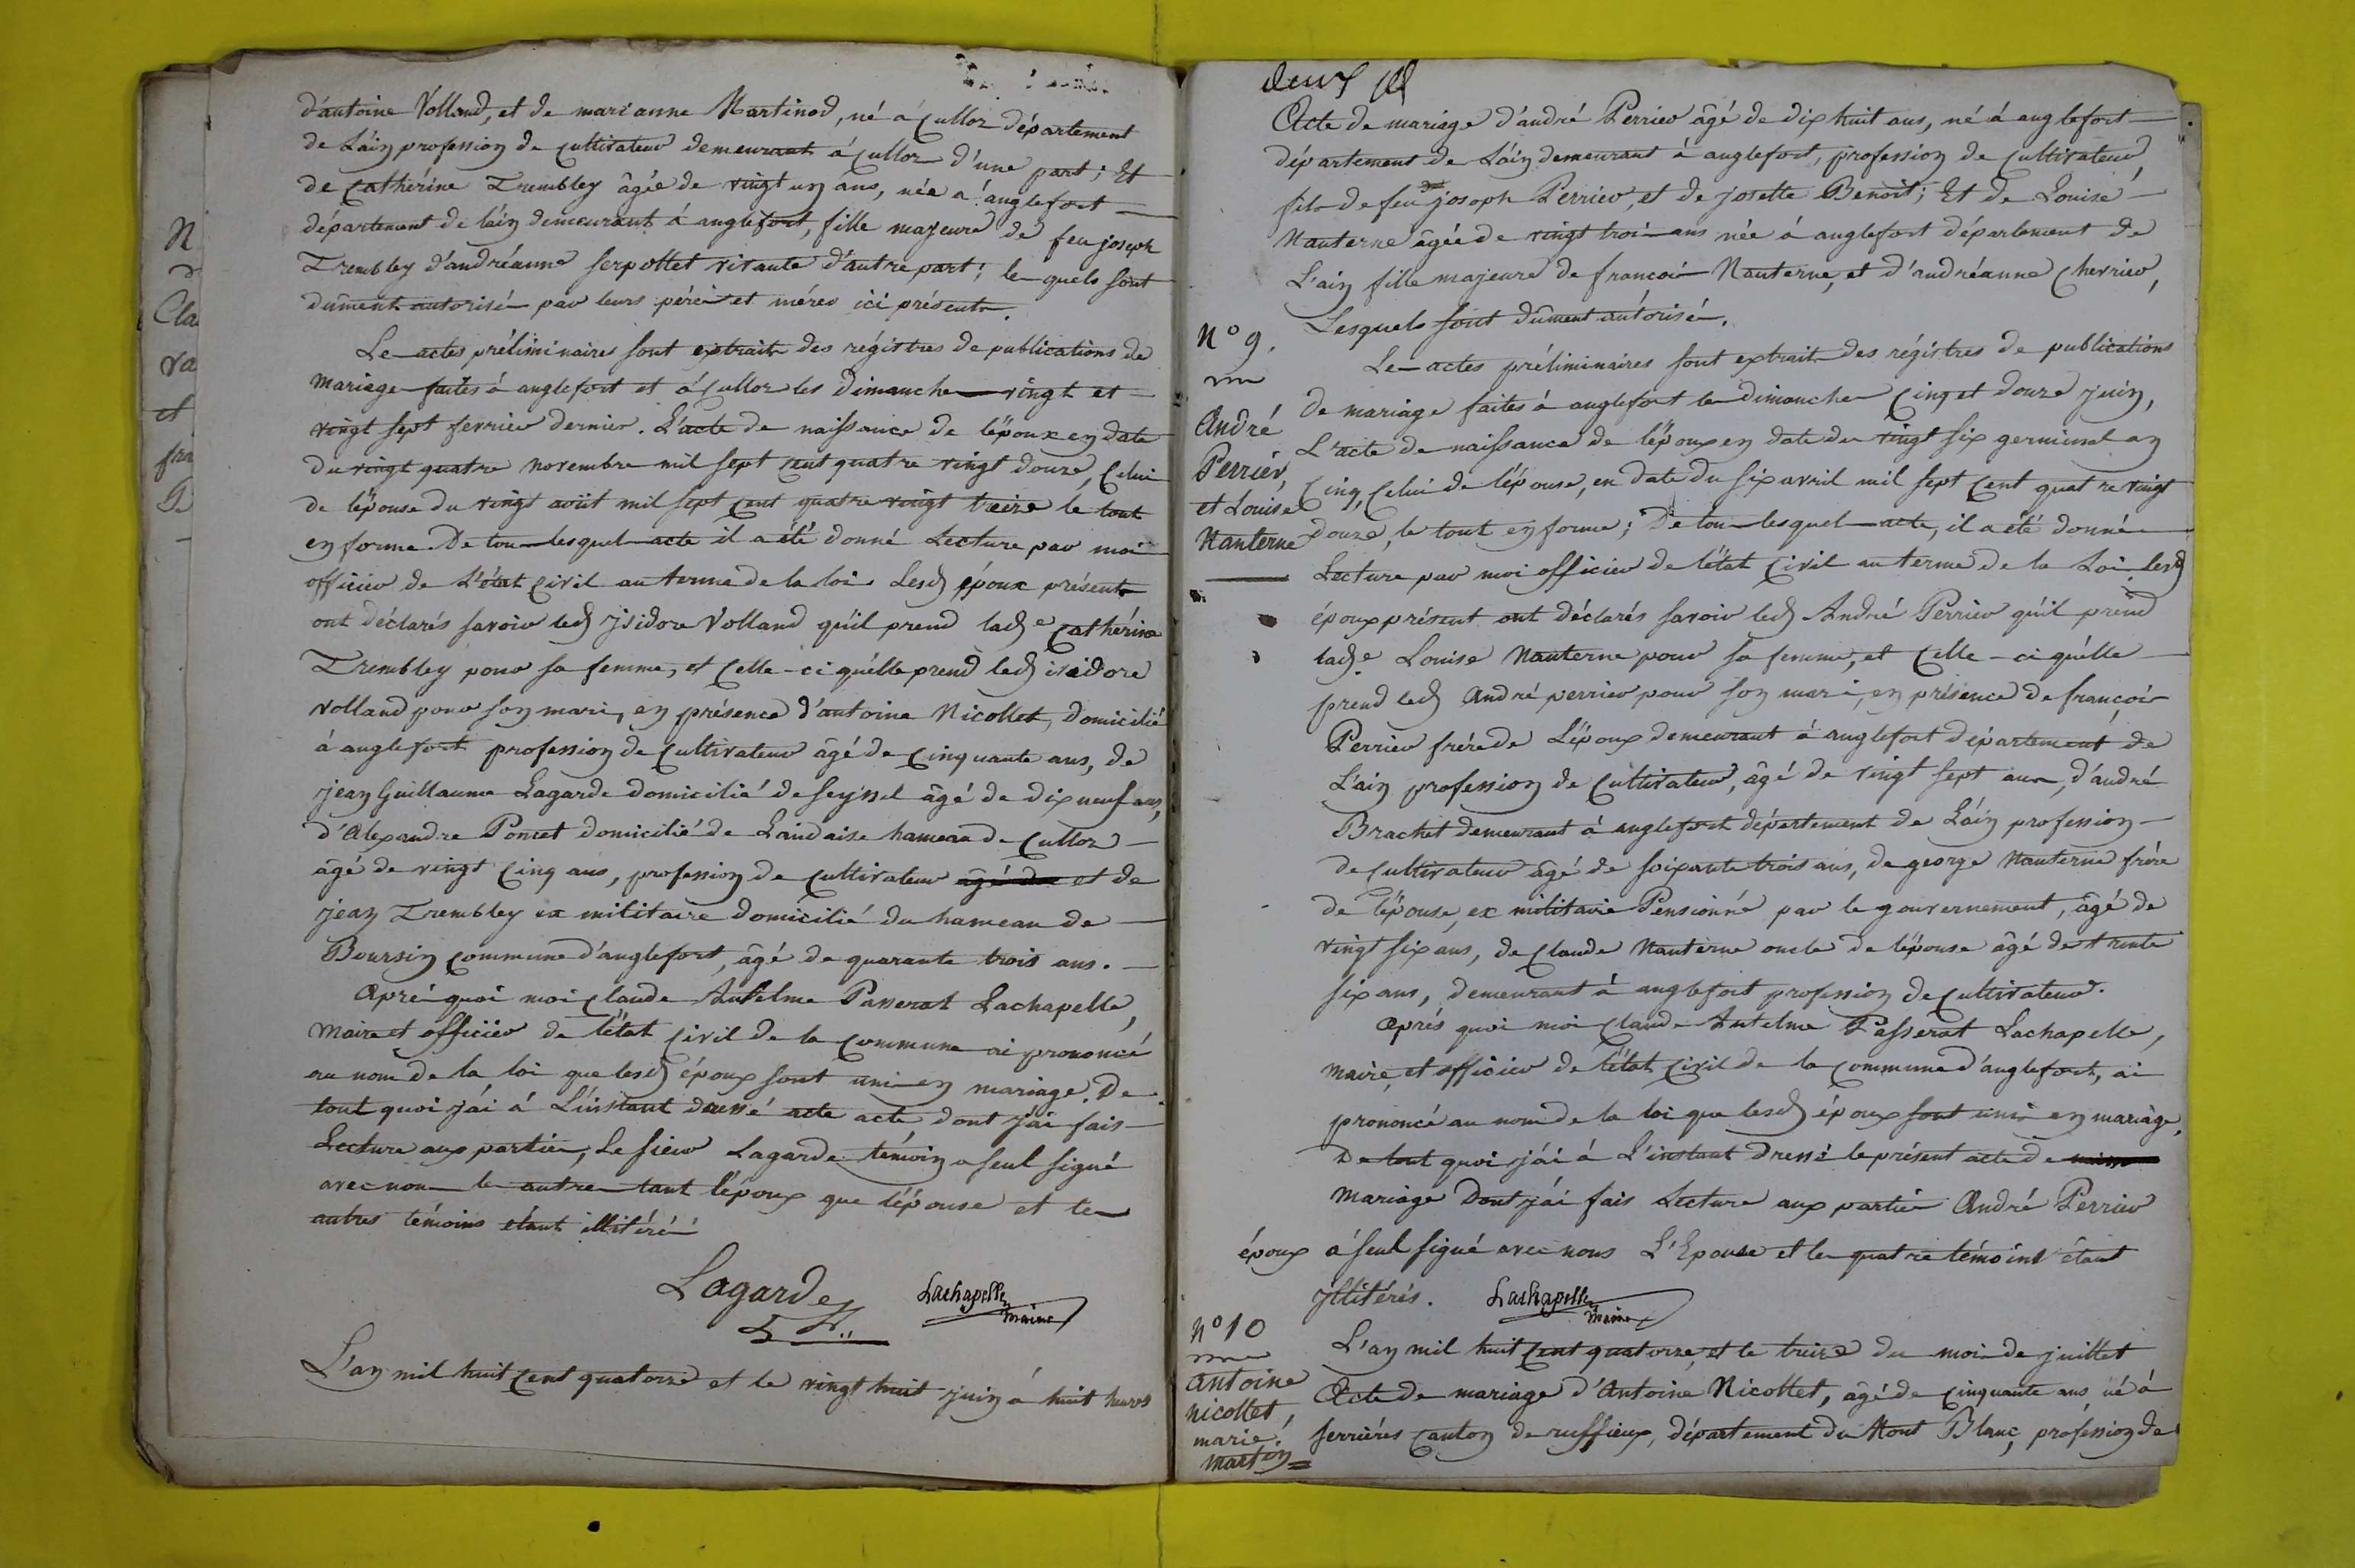 d'antoine Volland, et de marianne Martinod, né á Culloz département
de L'áin profession de Cultivateur demeurant á Culloz d'une part; Et
de Cathérine Trembley âgée de vingt un ans, née a anglefort
département de láin demeurant á anglefort, fille majeure de feu joseph
Trembley d'andréanne serpollet vivante d'autre part; lesquels sont
dûment autorisés par leurs péres et méres ici présents.
Les actes préliminaires sont extraits des régistres de publications de
Mariage faites á anglefort et á Culloz les dimanches vingt et
vingt sept fevrier dernier. L'acte de naissance de l'époux en date
du vingt quatre novembre mil sept cent quatre vingt douze, Celui
de l'épouse du vingt aoüt mil sept Cent quatre vingt treize le tout
en forme. De tous lesquels acte il a été donné Lecture par moi
officier de L'état Civil au terme de la loi. Lesd époux présents
ont déclarés savoir led jsidore Volland qu'il prend lad.e Cathérine
Trembley pour sa femme, et Celle-ci qu'elle prend led isidore
Volland pour son mari, en présence d'antoine Nicollet, domicilié
à anglefort profession de Cultivateur âgé de Cinquante ans, de
jean Guillaume Lagarde domicilié de seyssel âgé de dix neuf ans,
d'Alexandre Poncet domicilié de Landaise hameau de Culloz
âgé de vingt Cinq ans, profession de Cultivateur et de
jean Trembley ex militaire domicilié du hameau de
Boursin Commune d'anglefort, âgé de quarante trois ans.
Aprés quoi moi Claude Antelme Passerat Lachapelle,
Maire et officiér de l'état Civil de la Commune ai prononcé
au nom de la loi que lesd époux sont unis en mariage. De
tout quoi j'ái á L'instant dressé acte acte dont j'ai fais
Lecture aux parties, Le sieur Lagarde témoin a seul signé
avec nous les autres tant l'époux que l'épouse et les
autres témoins étant illitérés
Lagarde
Lachapelle
maire
L'an mil huit Cent quatorze et le vingt huit juin á huit heures
Acte de mariage d'andré Perrier âgé de dix huit ans, né á anglefort
département de L'áin demeurant á anglefort, profession de Cultivateur,
fils de feu joseph Perrier, et de josette Benoit; Et de Louise
Nanterne âgée de vingt trois ans née á anglefort département de
L'ain fille majeure de françois Nanterne, et d'andréanne Cherrier,
Lesquels sont dûment autorisés.
N° 9.
André
Perriér,
et Louise
Nanterne
Les actes préliminaires sont extraits des régistres de publications
de mariage faites á anglefort les dimanches Cinq et douze juin,
L'acte de naissance de l'époux en date du vingt six germinal an
Cinq, Celui de l'épouse, en date du six avril mil sept Cent quatre vingt
douze, le tout en forme; De tous lesquels acte, il a été donné
Lecture par moi officier de l'état Civil au terme de la Loi, lesd
époux présent ont déclarés savoir led André Perrier qu'il prend
lad.e Louise Nanterne pour sa femme, et Celle-ci qu'elle
prend led André perrier pour son mari, en présence de françois
Perrier frére de L'époux demeurant á anglefort département de
L'ain profession de Cultivateur, âgé de vingt sept ans, d'andré
Brachet demeurant á anglefort département de L'áin profession
de Cultivateur âgé de soixante trois ans, de george Nanterne frére
de l'épouse, ex militaire Pensionné par le gouvernement, âgé de
vingt six ans, de Claude Nanterne oncle de l'épouse âgé de trente
six ans, demeurant á anglefort profession de Cultivateur.
Aprés quoi moi Claude Antelme Passerat Lachapelle,
maire, et officier de l'état Civil de la Commune d'anglefort, ai
prononcé au nom de la loi que lesd époux sont unis en mariage,
De tout quoi j'ái á L'instant dressé le présent acte de
mariage dont j'ái fais Lecture aux parties André Perrier
époux á seul signé avec nous L'Epouse et les quatre témoins étant
jllitérés.
Lachapelle
maire
N° 10
Antoine
Nicollet,
marie
L'an mil huit Cent quatorze, et le treize du mois de juillet
Acte de mariage d'Antoine Nicollet, âgé de Cinquante ans né á
serriéres Canton de ruffieux, département du Mont Blanc, profession de